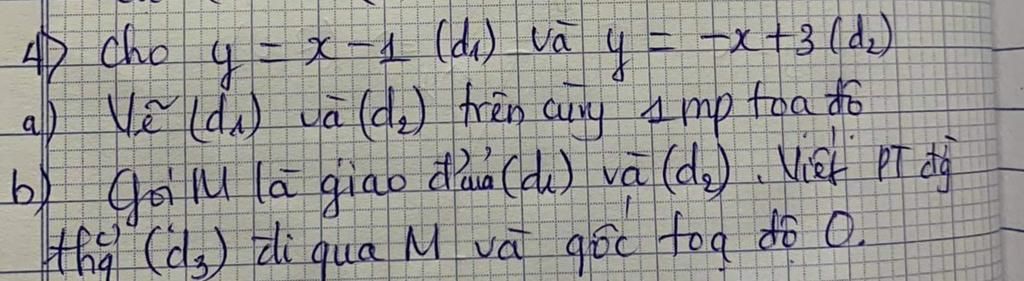 4) Cho y = x - 1 (d₁) và y = -x + 3 (d₂)
a) Vẽ (d₁) và (d₂) trên cùng 1 mp tọa độ
b) Gọi M là giao đ' của (d₁) và (d₂). Viết PT đg
thg (d₃) đi qua M và gốc tọa độ O.